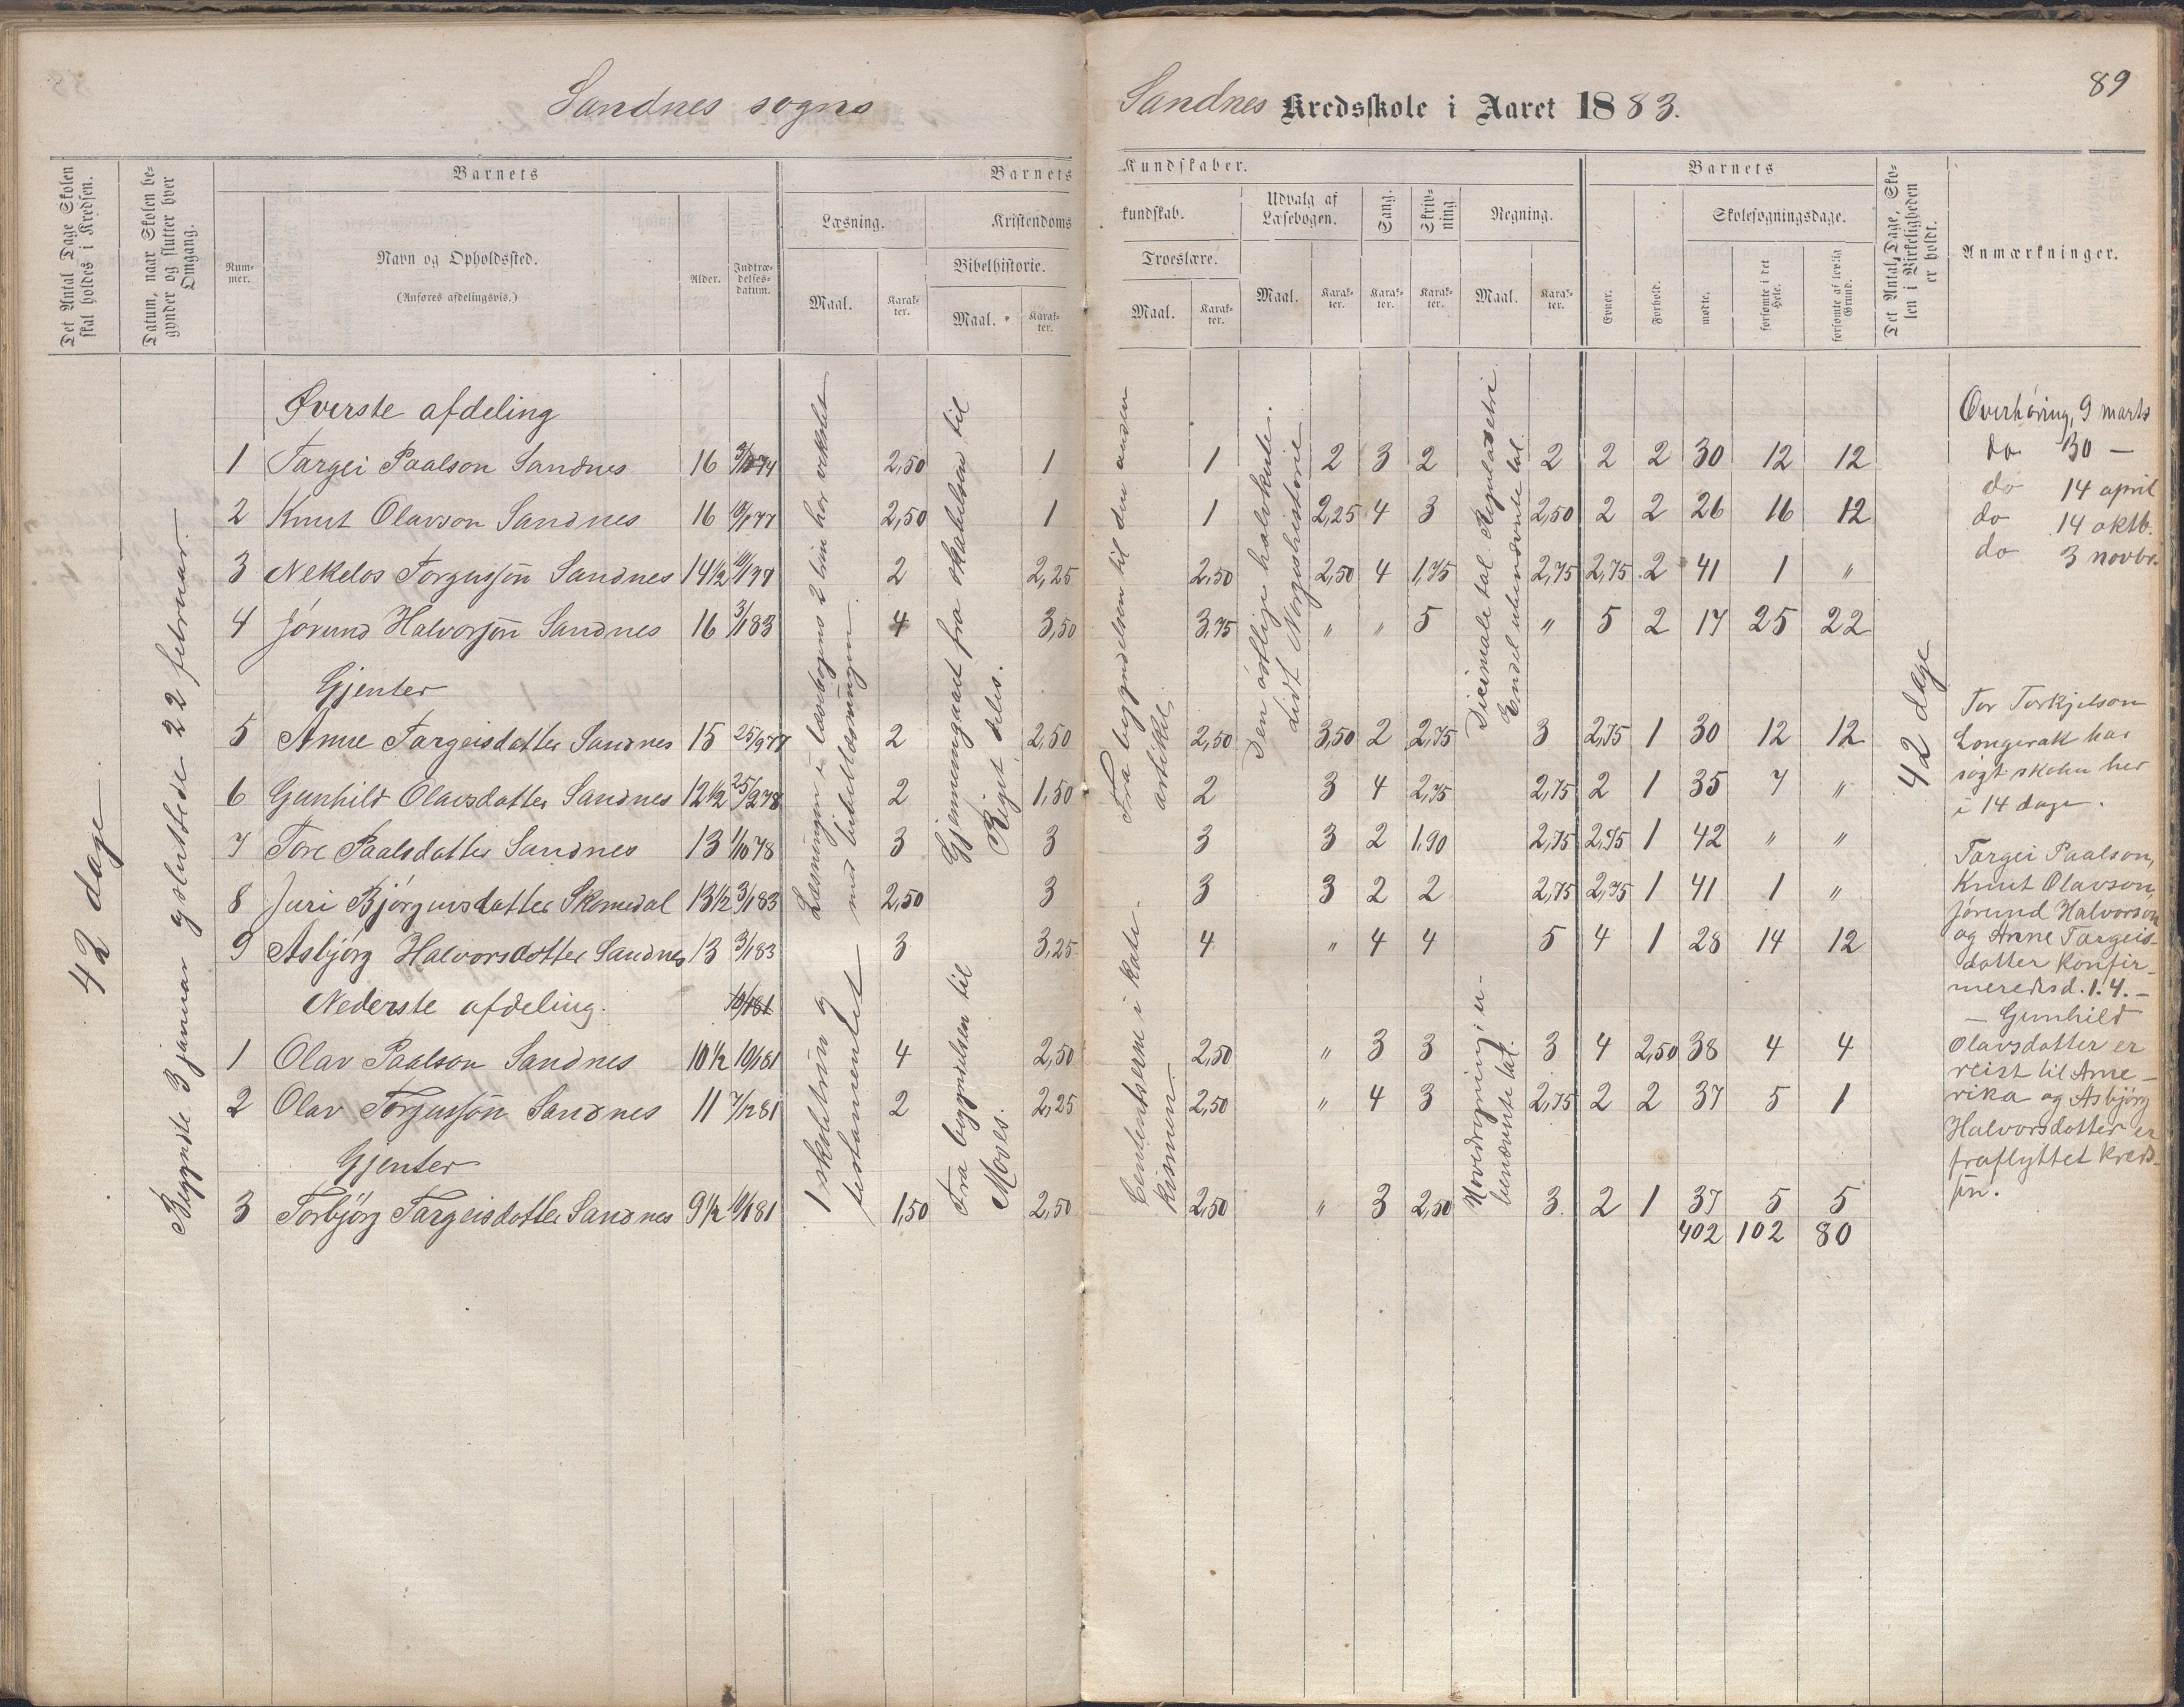 89
Sandnes sogns Sandnes Kredsskole i Aaret 1883.
Det Antal Dage Skolen skal holdes i Kredsen.
Datum, naar Skolen begynder og slutter hver Omgang.
Barnets
Nummer.
Navn og Opholdssted.
(Anføres afdelingsvis.)
Alder.
Indtrædelses-datum.
Barnets Kundskaber.
Læsning.
Maal.
Karakter.
Kristendomskundskab.
Bibelhistorie.
Maal.
Karakter.
Troeslære.
Maal.
Karakter.
Udvalg af Læsebogen.
Maal.
Karakter.
Sang.
Karakter.
Skrivning.
Karakter.
Regning.
Maal.
Karakter.
Barnets
Evner.
Forhold.
Skolesøgningsdage.
mødte.
forsømte i det Hele.
forsømte af lovlig Grund.
Det Antal Dage, Skolen i Virkeligheden er holdt.
Anmærkninger.
42 dage
Begyndte 3 januar og sluttede 22 februar
Øverste afdeling
1 Targei Paalson Sandnes 16 74 2,50 1 1 2 3 2 2 2 2 30 12 12
2 Knut Olavson Sandnes 16 10/1 77 2,50 1 1 2,25 4 3 2,50 2 2 26 16 12
3 Nekelos Torgussøn Sandnes 14½ 10/1 77 2 2,25 2,50 2,50 4 1,75 2,75 2,75 2 41 1 "
4 Jørund Halvorsøn Sandnes 16 3/1 83 4 3,50 3,75 " " 5 " 5 2 17 25 22
Gjenter
5 Anne Targeisdatter Sandnes 15 25/9 77 2 2,50 2,50 3,50 2 2,75 3 2,75 1 30 12 12
6 Gunhild Olavsdatter Sandnes 12½ 25/2 78 2 1,50 2 3 4 2,75 2,75 2 1 35 7 "
7 Tore Paalsdatter Sandnes 13 1/10 78 3 3 3 3 2 1,90 2,75 2,75 1 42 " "
8 Juri Bjørguvsdatter Skomedal 13½ 3/1 83 2,50 3 3 3 2 2 2,75 2,75 1 41 1 "
9 Asbjørg Halvorsdotter Sandnes 13 3/1 83 3 3,25 4 " 4 4 5 4 1 28 14 12
Nederste afdeling. 10/1 81
1 Olav Paalson Sandnes 10½ 10/1 81 4 2,50 2,50 " 3 3 3 4 2,50 38 4 4
2 Olav Torgussøn Sandnes 11 7/12 81 2 2,25 2,50 " 4 3 2,75 2 2 37 5 1
Gjenter
3 Torbjørg Targeisdotter Sandnes 9½ 10/1 81 1,50 2,50 2,50 " 3 2,50 3 2 1 37 5 5
402 102 80
Læsningen i læsebogens 2 trin har vekslet
med bibellæsningen.
1 skoletrin og
testamentet
Gjennemgaaet fra skabelsen til
Riget' deles.
Fra begyndelsen til
Moses.
Fra begyndelsen til den anden
artikel.
Cententserne i kate-
kismen
Den østlige halvkule.
Lidt Norgeshistorie
Decimale tal. Reguladetri
Endel ubenævnte tal.
Hoveregning i u-
benævnte tal.
42 dage
Overhøring, 9 marts
do 30 —
do 14 april
do 14 oktb.
do 3 novbr.
Tor Torkjelson
Longerak har
søgt skolen her
i 14 dage.
Targei Paalson,
Knut Olavson,
Jørund Halvorson
og Anne Targeis-
datter konfir-
meredes d. 1. 4. —
— Gunhild
Olavsdatter er
reist til Ame-
rika og Asbjørg
Halvorsdotter er
fraflyttet kreds-
en.